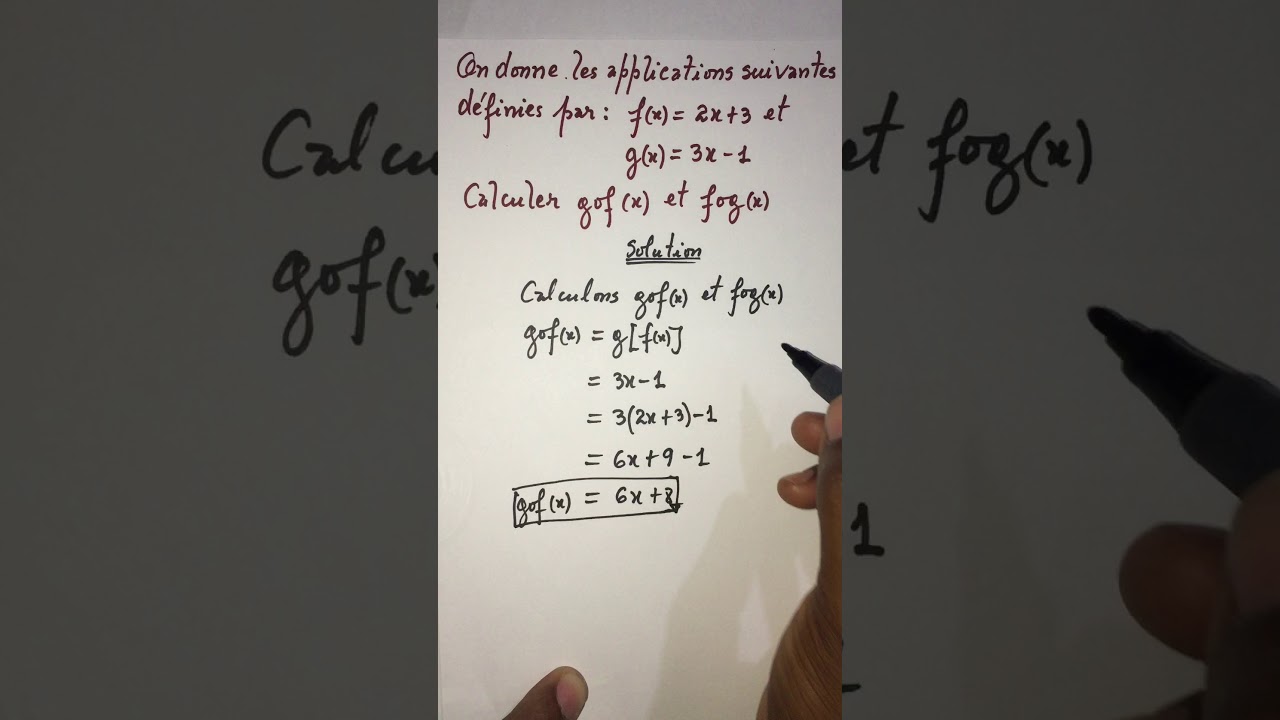 On donne les applications suivantes
définies par : f(x) = 2x+3 et
g(x) = 3x-1
Calculer gof(x) et fog(x)
Solution
Calculons gof(x) et fog(x)
gof(x) = g[f(x)]
= 3x-1
= 3(2x+3)-1
= 6x+9-1
gof(x) = 6x+8